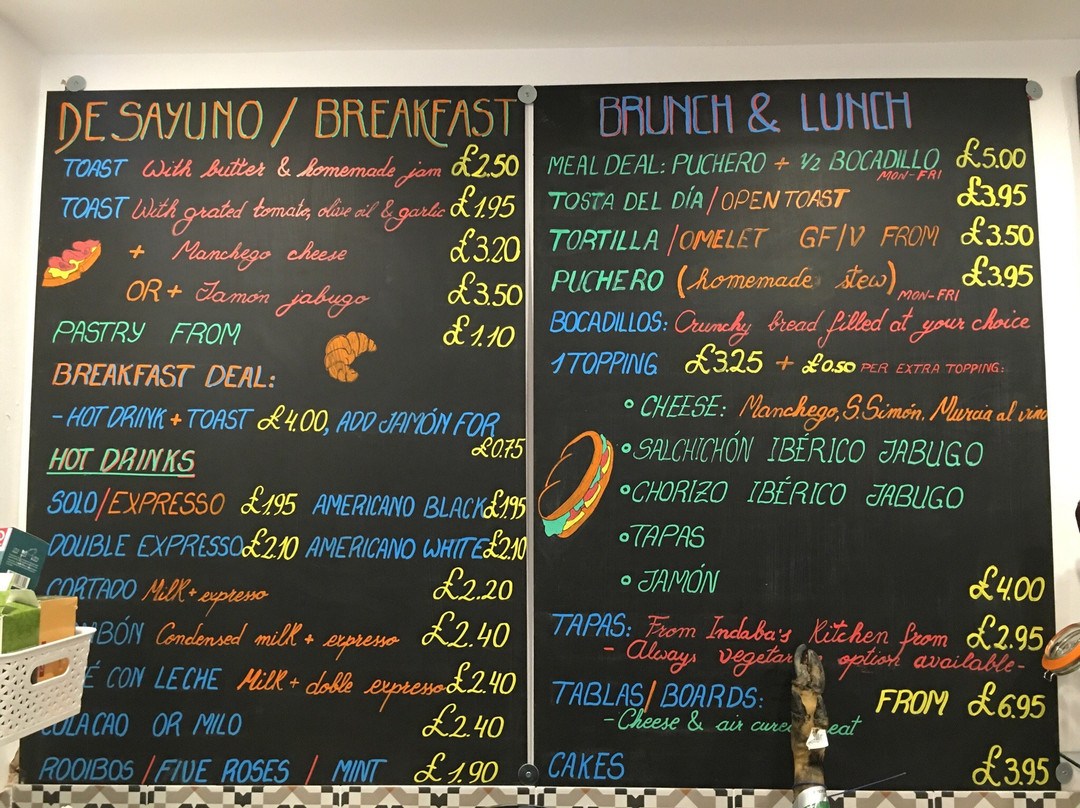 DESAYUNO / BREAKFAST
TOAST With butter & homemade jam £2.50
TOAST With grated tomato, olive oil & garlic £1.95
+ Manchego cheese £3.20
OR + Jamón jabugo £3.50
PASTRY FROM £1.10
BREAKFAST DEAL:
- HOT DRINK + TOAST £4.00, ADD JAMÓN FOR
£0.75
HOT DRINKS
SOLO/EXPRESSO £1.95 AMERICANO BLACK £1.95
DOUBLE EXPRESSO £2.10 AMERICANO WHITE £2.10
CORTADO Milk + expresso £2.20
Condensed milk + expresso £2.40
CON LECHE Milk + doble expresso £2.40
OR MILO £2.40
ROOIBOS / FIVE ROSES / MINT £1.90
BRUNCH & LUNCH
MEAL DEAL: PUCHERO + 1/2 BOCADILLO £5.00
MON-FRI
TOSTA DEL DÍA / OPEN TOAST £3.95
TORTILLA / OMELET GF/V FROM £3.50
PUCHERO (homemade stew) £3.95
MON-FRI
BOCADILLOS: Crunchy bread filled at your choice
1 TOPPING £3.25 + £0.50 PER EXTRA TOPPING:
CHEESE: Manchego, S. Simón, Murcia al vino
SALCHICHÓN IBÉRICO JABUGO
CHORIZO IBÉRICO JABUGO
TAPAS
JAMÓN £4.00
TAPAS: From Indaba's Kitchen from £2.95
- Always option available -
TABLAS / BOARDS: FROM £6.95
- Cheese & air
CAKES £3.95